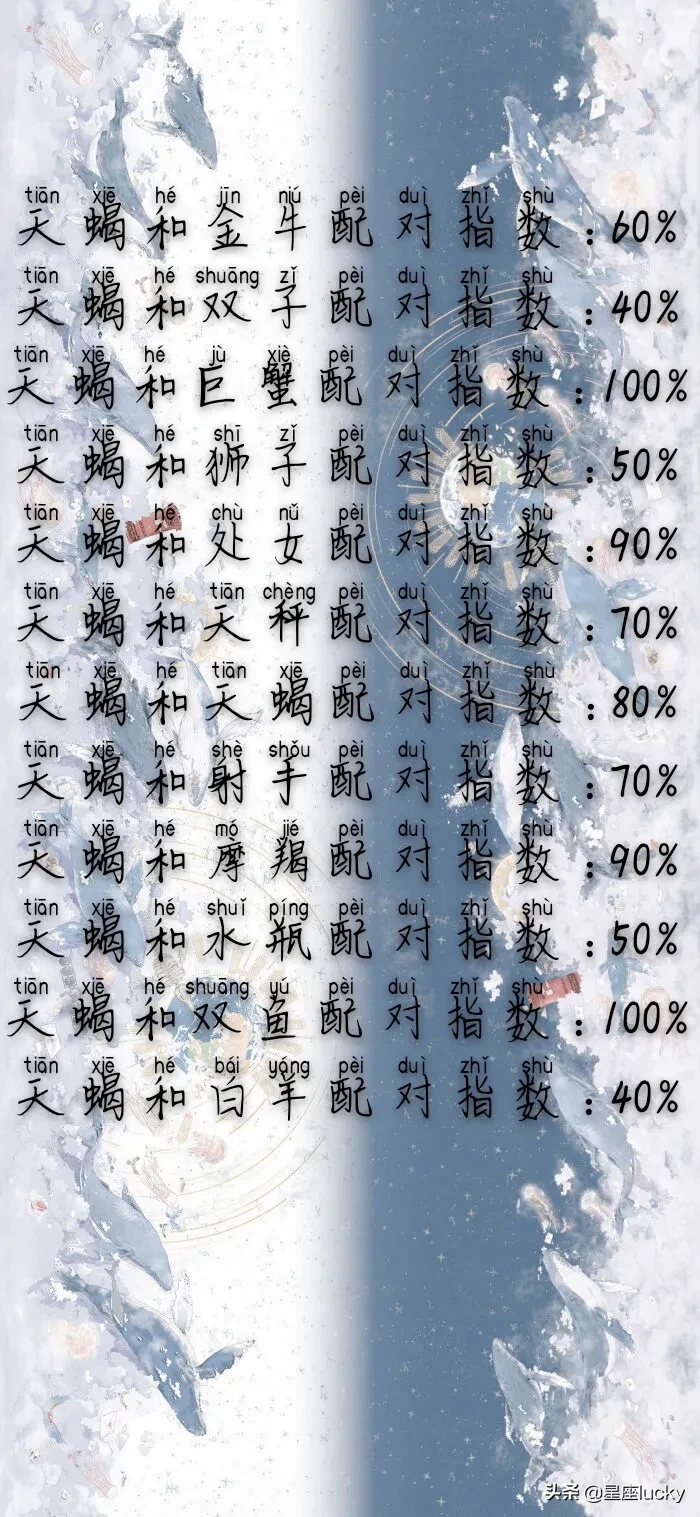 tiān xiē hé jīn niú pèi duì zhǐ shù
天蝎和金牛配对指数:60%
tiān xiē hé shuāng zǐ pèi duì zhǐ shù
天蝎和双子配对指数:40%
tiān xiē hé jù xiè pèi duì zhǐ shù
天蝎和巨蟹配对指数:100%
tiān xiē hé shī zǐ pèi duì zhǐ shù
天蝎和狮子配对指数:50%
tiān xiē hé chù nǚ pèi duì zhǐ shù
天蝎和处女配对指数:90%
tiān xiē hé tiān chèng pèi duì zhǐ shù
天蝎和天秤配对指数:70%
tiān xiē hé tiān xiē pèi duì zhǐ shù
天蝎和天蝎配对指数:80%
tiān xiē hé shè shǒu pèi duì zhǐ shù
天蝎和射手配对指数:70%
tiān xiē hé mó jié pèi duì zhǐ shù
天蝎和摩羯配对指数:90%
tiān xiē hé shuǐ píng pèi duì zhǐ shù
天蝎和水瓶配对指数:50%
tiān xiē hé shuāng yú pèi duì zhǐ shù
天蝎和双鱼配对指数:100%
tiān xiē hé bái yáng pèi duì zhǐ shù
天蝎和白羊配对指数:40%
头条 @星座lucky